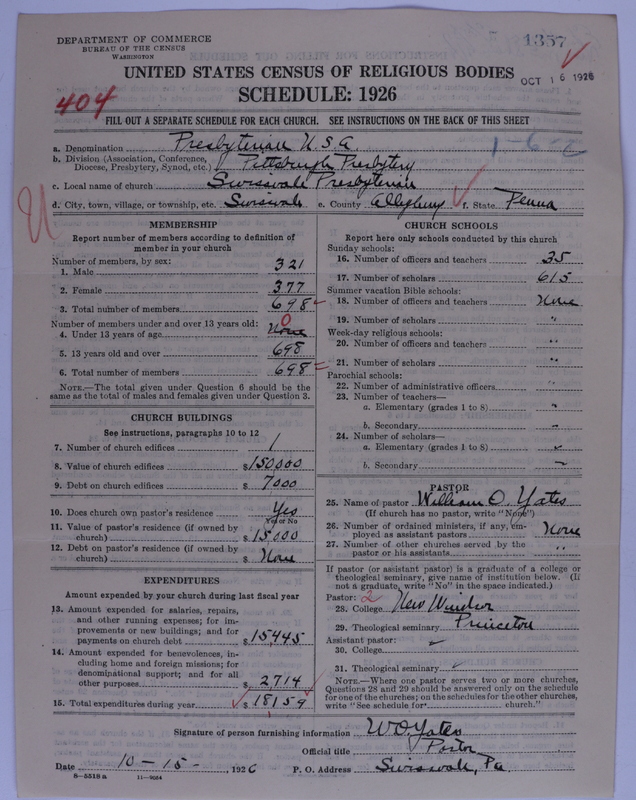 DEPARTMENT OF COMMERCE
BUREAU OF THE CENSUS
WASHINGTON
1357
UNITED STATES CENSUS OF RELIGIOUS BODIES
OCT 16 1926
SCHEDULE: 1926
404
FILL OUT A SEPARATE SCHEDULE FOR EACH CHURCH. SEE INSTRUCTIONS ON THE BACK OF THIS SHEET
a. Denomination Presbyterian U.S.A.
1-6-2
b. Division (Association, Conference, Diocese, Presbytery, Synod, etc.) Pittsburgh Presbytery
c. Local name of church Swissvale Presbyterian
d. City, town, village, or township, etc. Swissvale e. County Allegheny f. State Penna
U
MEMBERSHIP
Report number of members according to definition of
member in your church
Number of members, by sex:
1. Male 321
2. Female 377
3. Total number of members 698
Number of members under and over 13 years old:
4. Under 13 years of age None 0
5. 13 years old and over 698
6. Total number of members 698
NOTE.—The total given under Question 6 should be the
same as the total of males and females given under Question 3.
CHURCH BUILDINGS
See instructions, paragraphs 10 to 12
7. Number of church edifices 1
8. Value of church edifices $150000
9. Debt on church edifices $7000
10. Does church own pastor's residence Yes
Yes or No
11. Value of pastor's residence (if owned by
church) $15000
12. Debt on pastor's residence (if owned by
church) $None
EXPENDITURES
Amount expended by your church during last fiscal year
13. Amount expended for salaries, repairs,
and other running expenses; for im-
provements or new buildings; and for
payments on church debt $15445
14. Amount expended for benevolences, in-
cluding home and foreign missions; for
denominational support; and for all
other purposes $2714
15. Total expenditures during year $18159
CHURCH SCHOOLS
Report here only schools conducted by this church
Sunday schools:
16. Number of officers and teachers 35
17. Number of scholars 615
Summer vacation Bible schools:
18. Number of officers and teachers None
19. Number of scholars "
Week-day religious schools:
20. Number of officers and teachers "
21. Number of scholars "
Parochial schools:
22. Number of administrative officers "
23. Number of teachers—
a. Elementary (grades 1 to 8) "
b. Secondary "
24. Number of scholars—
a. Elementary (grades 1 to 8) "
b. Secondary "
PASTOR
25. Name of pastor William O. Yates
(If church has no pastor, write "None")
26. Number of ordained ministers, if any, em-
ployed as assistant pastors None
27. Number of other churches served by the
pastor or his assistants "
If pastor (or assistant pastor) is a graduate of a college or
theological seminary, give name of institution below. (If
not a graduate, write "No" in the space indicated.)
Pastor: 2
28. College New Windsor
29. Theological seminary Princeton
Assistant pastor:
30. College
31. Theological seminary
NOTE.—Where one pastor serves two or more churches,
Questions 28 and 29 should be answered only on the schedule
for one of the churches; on the schedules for the other churches,
write "See schedule for church."
Signature of person furnishing information W. O. Yates
Official title Pastor
Date 10-15-, 1926 P. O. Address Swissvale, Pa.
8—5518 a 11—9054